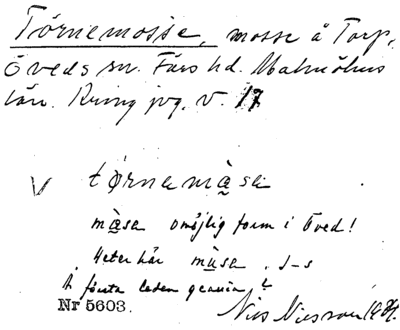 Törnemosse, mosse å Torp,
Öveds sn. Färs hd. Malmöhus
län. Kring jvg. v. 17
V tørnamåsa
måsa omöjlig form i Öved!
Heter här musa. J-s
Är första leden genuin?
Nr 5603. Nils Nilsson